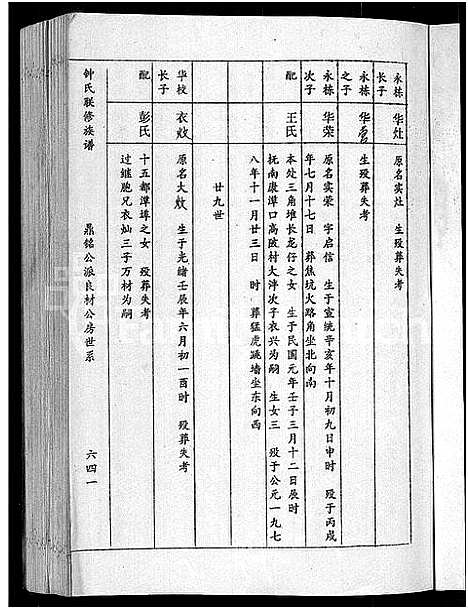 永栋长子 华灶 原名实灶 生殁葬失考
永栋之子 华富 生殁葬失考
永栋次子 华荣 原名实荣 字启信 生于宣统辛亥年十月初九日申时 殁于丙戌
年七月十七日 葬焦坑火路角坐北向南
配 王氏 本处三角堆长龙仔之女 生于民国元年壬子三月十二日辰时
抚南康潭口高陂村大泮次子衣兴为嗣 生女三 殁于公元一九七
八年十一月廿三日 时 葬猛虎跳墙坐东向西
廿九世
华校长子 衣效 原名大效 生于光绪壬辰年六月初一酉时 殁葬失考
配 彭氏 十五都潭埠之女 殁葬失考
过继胞兄衣灿三子万材为嗣
钟氏联修族谱 鼎铭公派良材公房世系 六四一